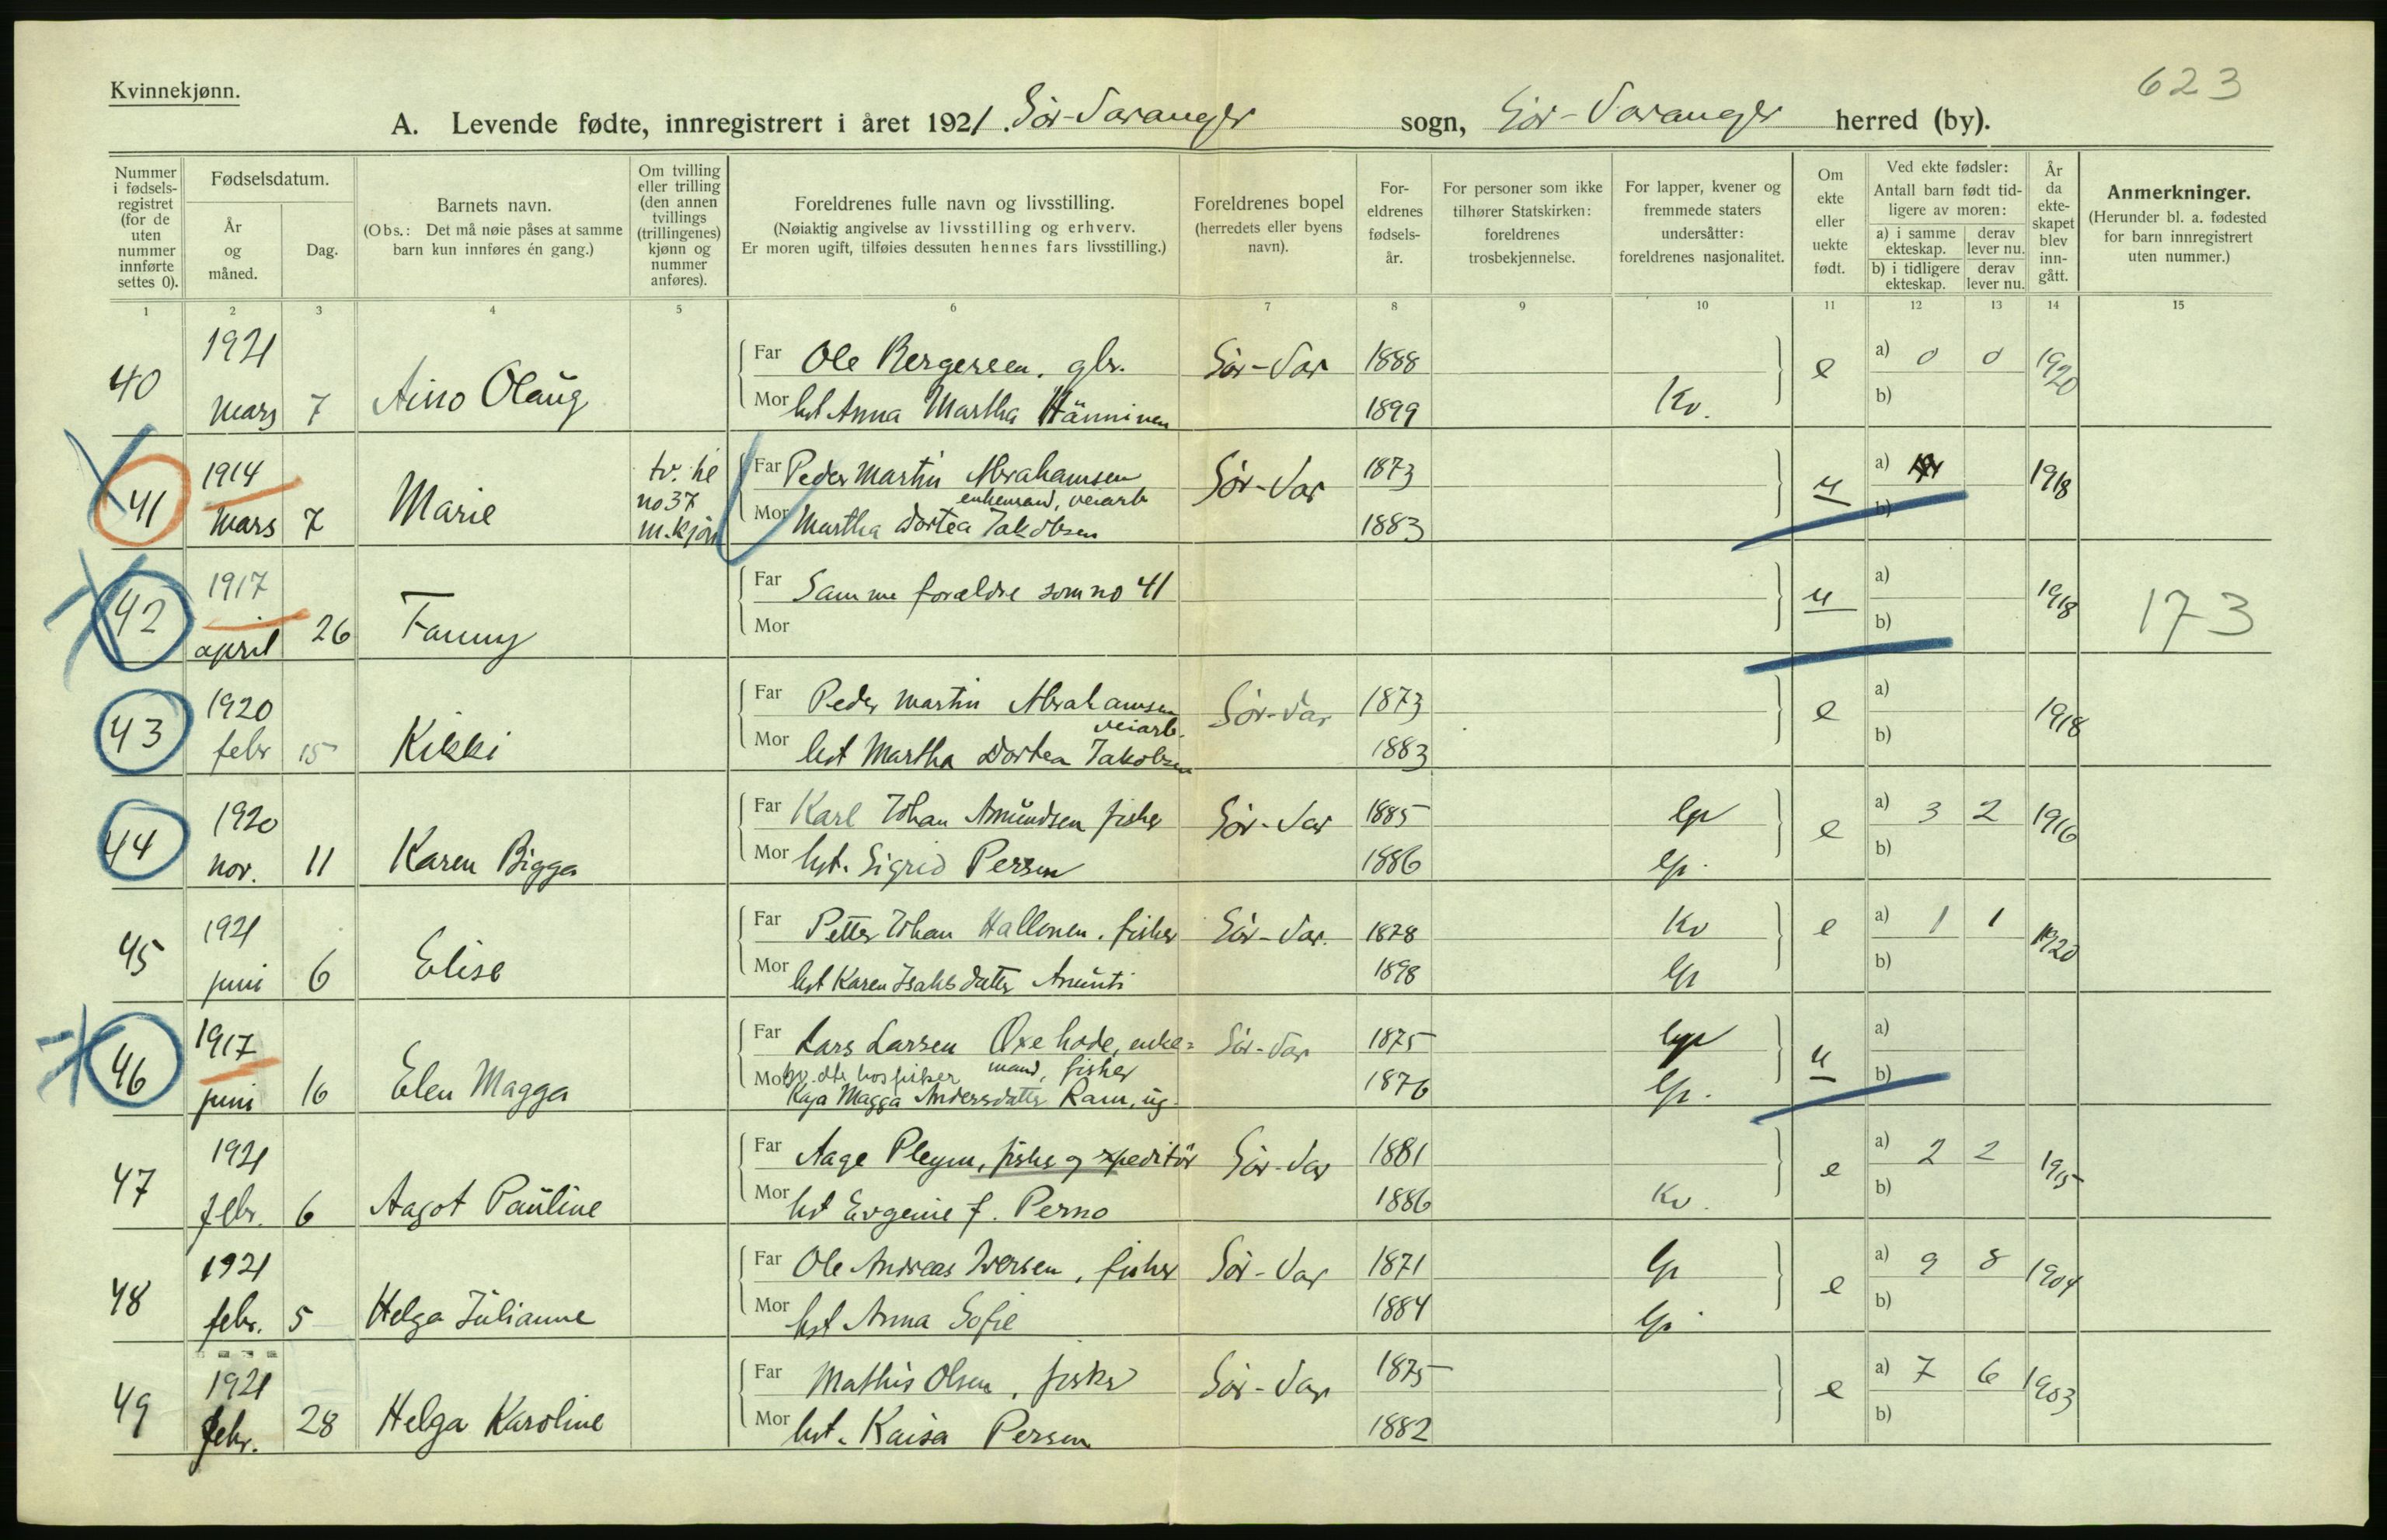 Kvinnekjønn.
623
A. Levende fødte, innregistrert i året 1921. Sør-Varanger sogn, Sør-Varanger herred (by).
Nummer i fødsels-registret (for de uten nummer innførte settes 0).
Fødselsdatum.
År og måned.
Dag.
Barnets navn.
(Obs.: Det må nøie påses at samme barn kun innføres én gang.)
Om tvilling eller trilling (den annen tvillings (trillingenes) kjønn og nummer anføres).
Foreldrenes fulle navn og livsstilling.
(Nøiaktig angivelse av livsstilling og erhverv.
Er moren ugift, tilføies dessuten hennes fars livsstilling.)
Foreldrenes bopel (herredets eller byens navn).
For-eldrenes fødsels-år.
For personer som ikke tilhører Statskirken: foreldrenes trosbekjennelse.
For lapper, kvener og fremmede staters undersåtter: foreldrenes nasjonalitet.
Om ekte eller uekte født.
Ved ekte fødsler:
Antall barn født tid-ligere av moren:
a) i samme ekteskap.
derav lever nu.
b) i tidligere ekteskap.
derav lever nu.
År da ekte-skapet blev inn-gått.
Anmerkninger.
(Herunder bl. a. fødested for barn innregistrert uten nummer.)
1 2 3 4 5 6 7 8 9 10 11 12 13 14 15
40 1921 mars 7 Aino Olaug
Far Ole Bergersen. gbr. Sør-Var 1888 e a) 0 0 1920
Mor hst Anna Martha Hänninen 1899 Kv. b)
41 1914 mars 7 Marie tv. til no 37 m.kjøn
Far Peder Martin Abrahamsen Sør-Var 1873 u a) 1918
enkemand, veiarb
Mor Martha Dortea Jakobsen 1883 b)
42 1917 april 26 Fanny
Far Samme forældre som no 41 u a) 1918 173
Mor b)
43 1920 febr 15 Kikki
Far Peder Martin Abrahamsen Sør-Var 1873 e a) 1918
veiarb.
Mor hst Martha Dortea Jakobsen 1883 b)
44 1920 nov. 11 Karen Bigga
Far Karl Johan Amundsen fisker Sør-Var 1885 lp e a) 3 2 1916
Mor hst. Sigrid Persen 1886 lp. b)
45 1921 juni 6 Elise
Far Petter Johan Hallonen. fisker Sør-Var. 1878 Kv e a) 1 1 1920
Mor hst Karen Isaksdatter Amunti 1898 lp b)
46 1917 juni 16 Elen Magga
Far Lars Larsen Oxehode, enke= Sør-Var 1875 lp u a)
mand, fisker
Mor dtr hos fisker
Kaja Magga Andersdatter Ram, ug. 1876 lp. b)
47 1921 febr. 6 Aagot Pauline
Far Aage Pleym, fisker og expeditör Sør-Var 1881 e a) 2 2 1915
Mor hst Evgenie f. Perno 1886 Kv. b)
48 1921 febr. 5 Helga Julianne
Far Ole Andreas Iversen, fisker Sør-Var 1871 lp e a) 9 8 1904
Mor hst Anna Sofie 1884 lp. b)
49 1921 febr. 28 Helga Karoline
Far Mathis Olsen, fisker Sør-Var 1875 e a) 7 6 1903
Mor hst. Kaisa Persen 1882 b)